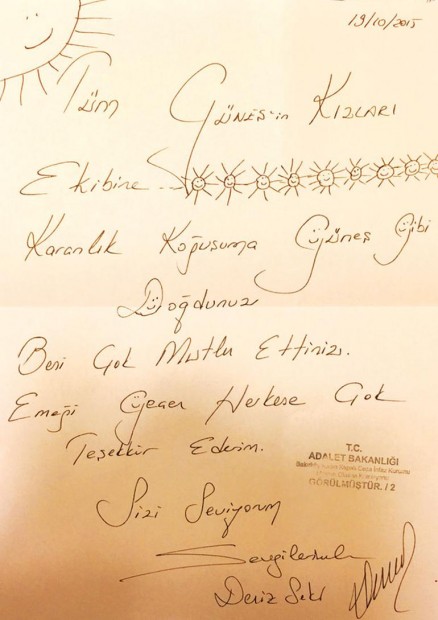 19/10/2015
Tüm Güneş'in Kızları
Ekibine...
Karanlık Koğuşuma Güneş Gibi
Doğdunuz
Beni Çok Mutlu Ettiniz.
Emeği Geçen Herkese Çok
Teşekkür Ederim.
T.C.
ADALET BAKANLIĞI
GÖRÜLMÜŞTÜR. / 2
Sizi Seviyorum
Sevgilerimle
Deniz Seki